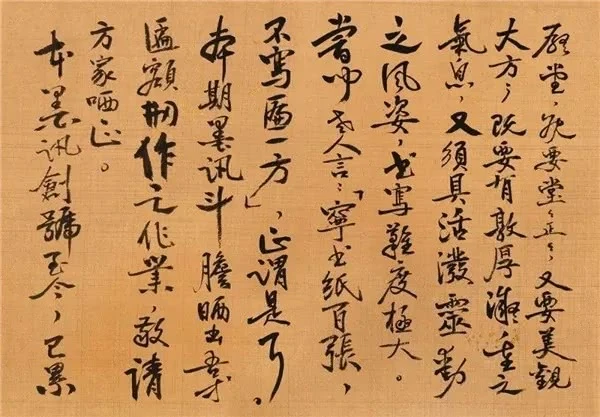 堂,要堂堂正正,又要美觀
大方;既要有敦厚凝重之
氣息,又須具活潑靈動
之風姿,书寫難度極大。
嘗聞老人言:「寧书纸百張,
不寫匾一方」,正謂是了。
本期墨訊斗膽晒出
匾額刱作之作業 敬請
方家哂正。
本墨訊創號至今,已累